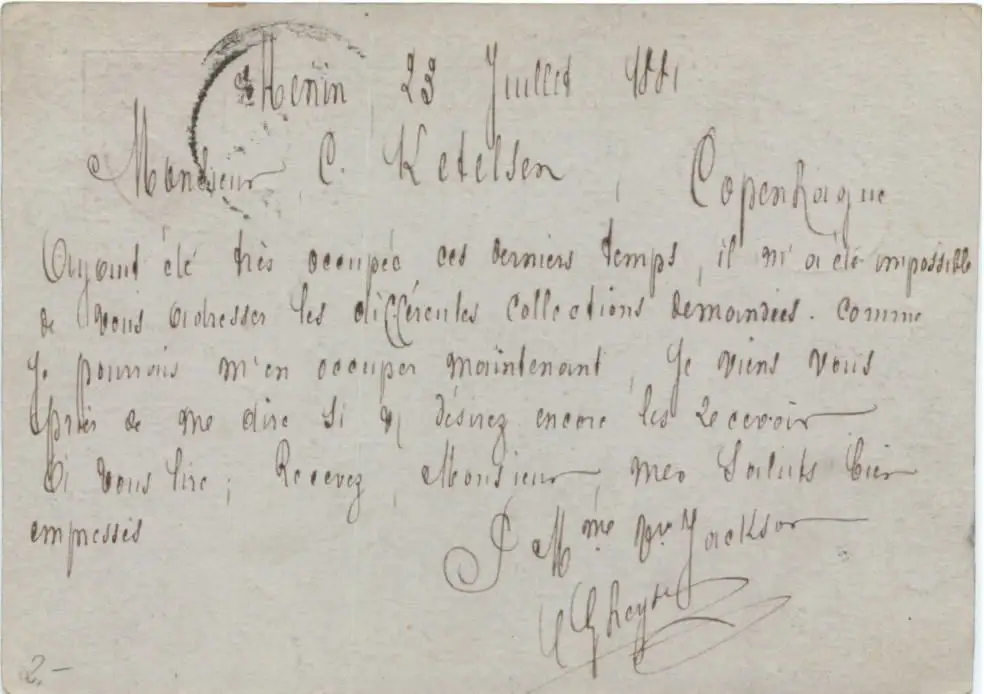 Menin 23 Juillet 1881
Monsieur C. Ketelsen, Copenhague
Ayant été très occupée ces derniers temps, il m'a été impossible
de vous adresser les différentes collections demandées. Comme
je pourrais m'en occuper maintenant, je viens vous
prier de me dire si v désirez encore les recevoir
A vous lire, Recevez, Monsieur, mes Saluts bien
empressés
P Mme Vve Jackson
2.-